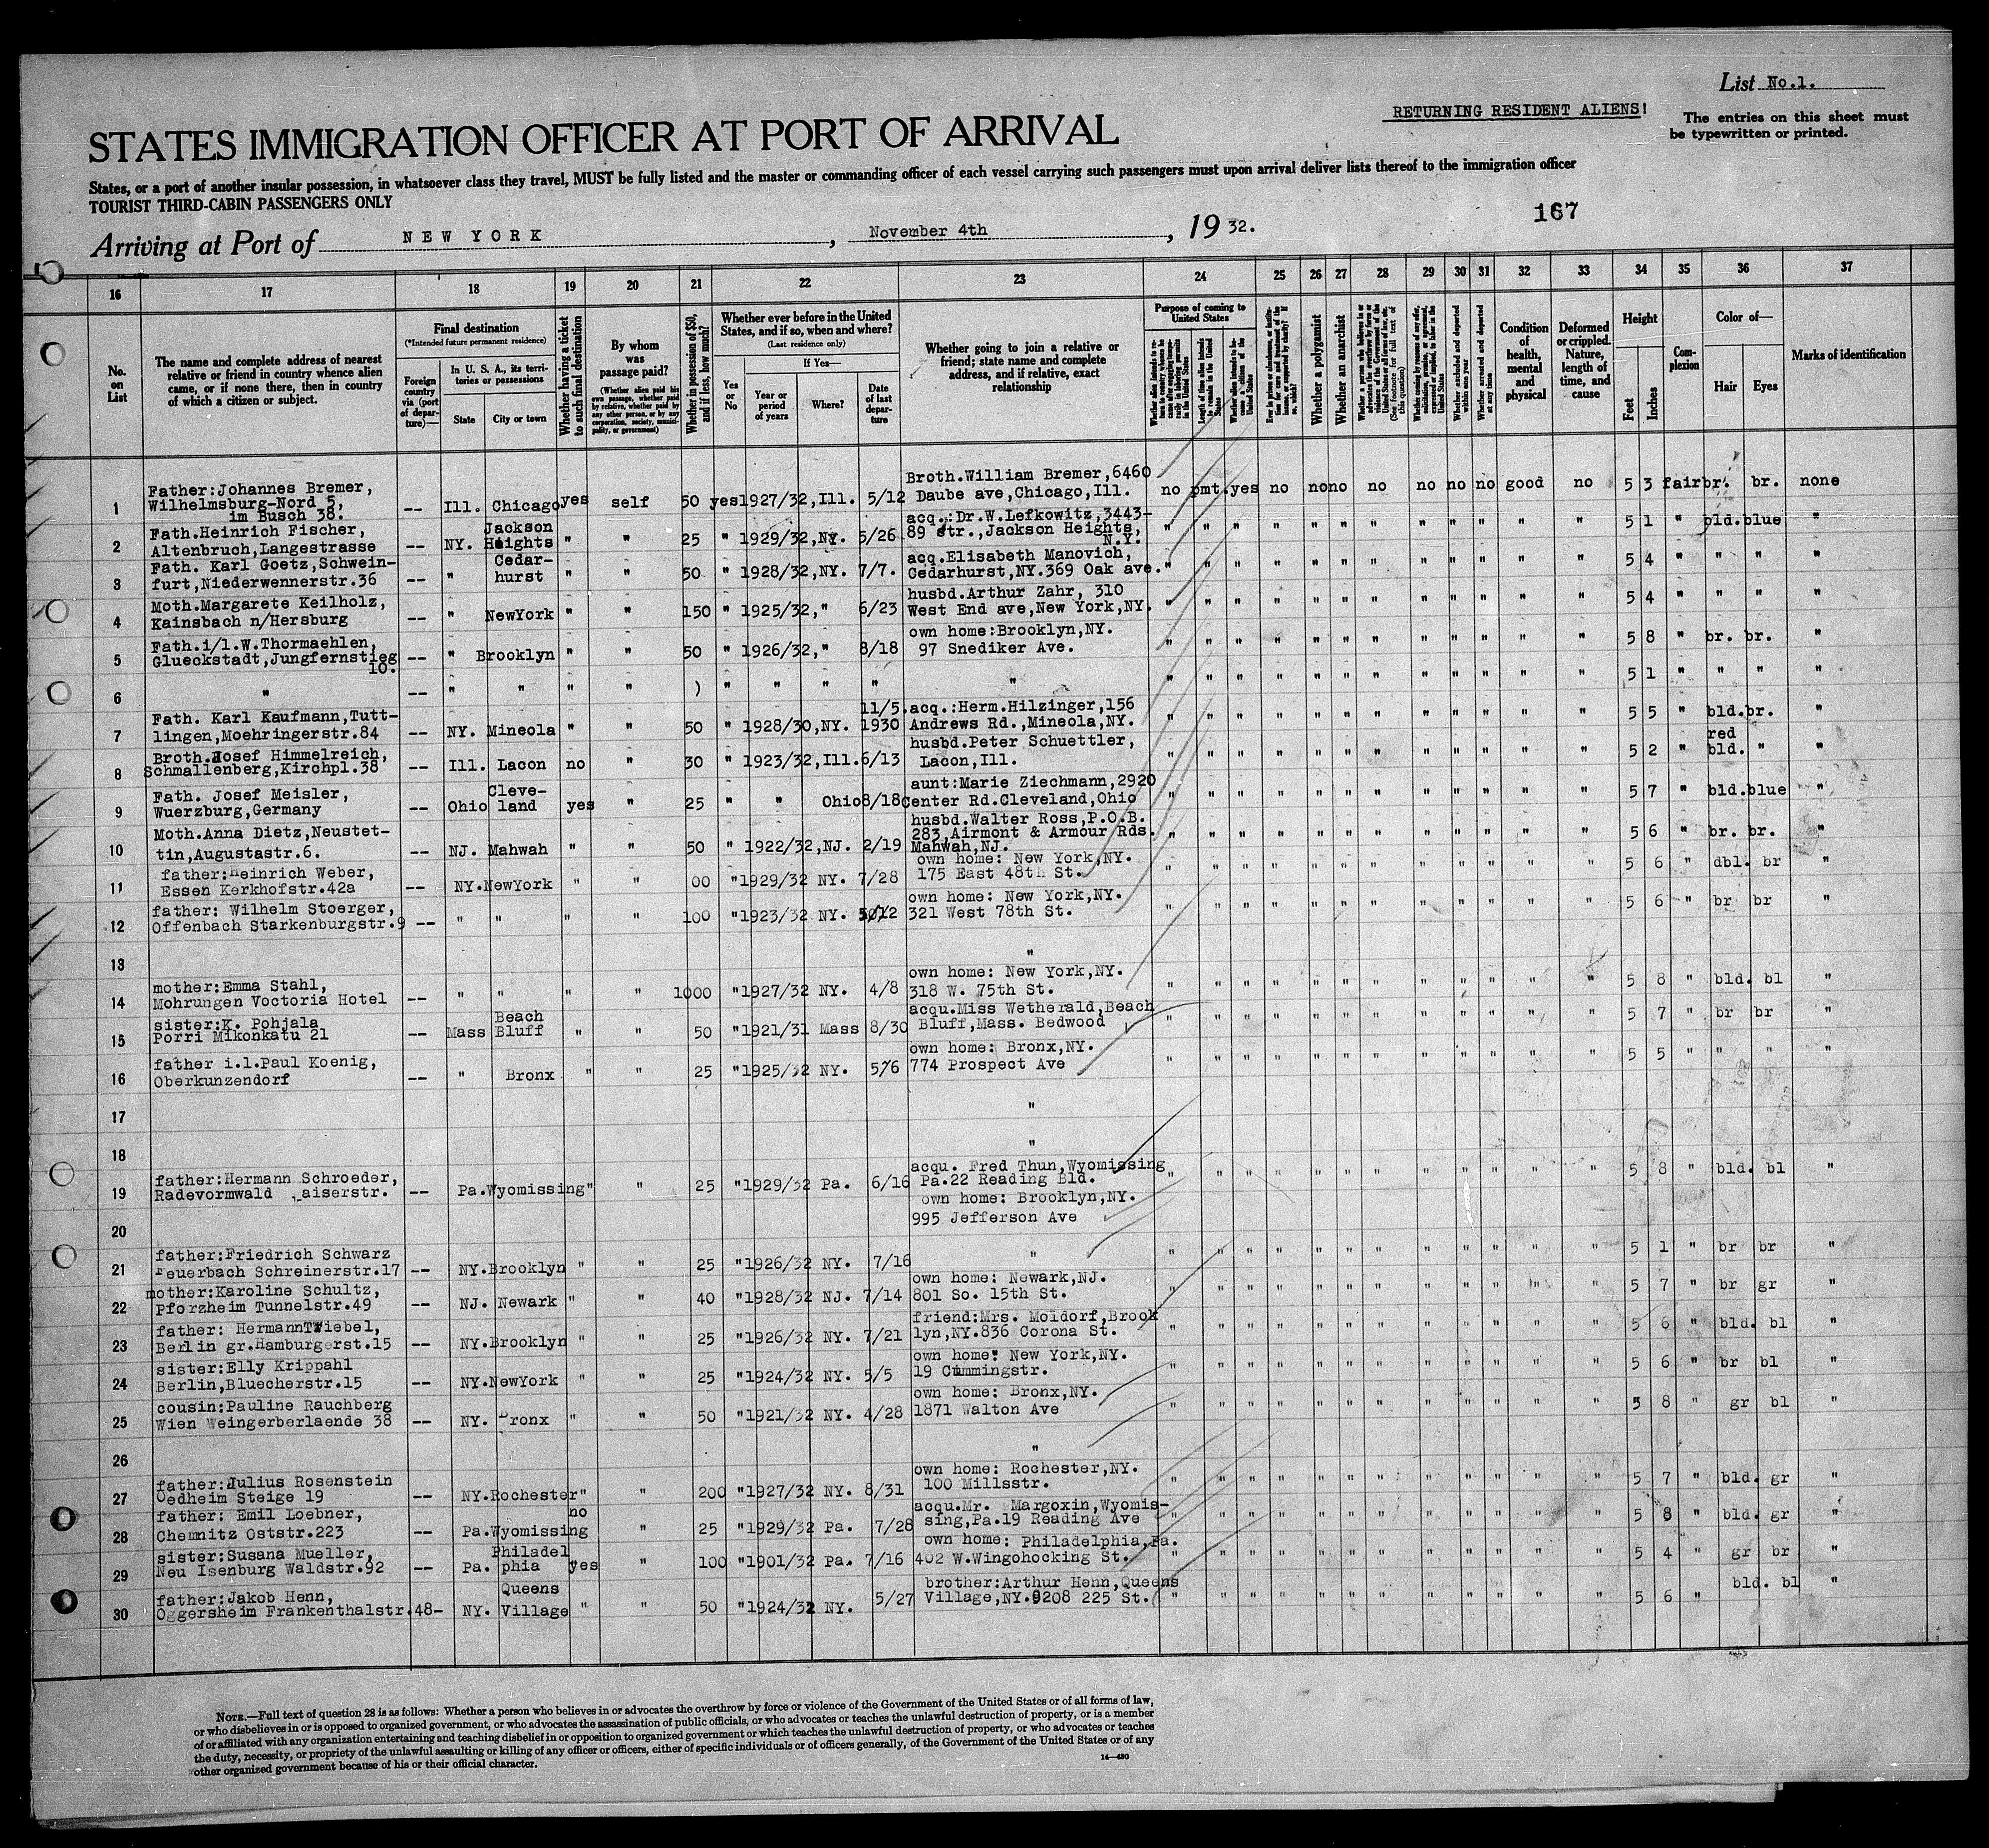 List No.1.
RETURNING RESIDENT ALIENS!
The entries on this sheet must
be typewritten or printed.
STATES IMMIGRATION OFFICER AT PORT OF ARRIVAL
States, or a port of another insular possession, in whatsoever class they travel, MUST be fully listed and the master or commanding officer of each vessel carrying such passengers must upon arrival deliver lists thereof to the immigration officer
TOURIST THIRD-CABIN PASSENGERS ONLY
167
Arriving at Port of NEW YORK, November 4th, 1932.
16 17 18 19 20 21 22 23 24 25 26 27 28 29 30 31 32 33 34 35 36 37
No. on List
The name and complete address of nearest relative or friend in country whence alien came, or if none there, then in country of which a citizen or subject.
Final destination
(*Intended future permanent residence)
Foreign country via (port of departure)—
In U. S. A., its territories or possessions
State
City or town
Whether having a ticket to such final destination
By whom was passage paid?
(Whether alien paid his own passage, whether paid by relative, whether paid by any other person, or by any corporation, society, municipality, or government)
Whether in possession of $50, and if less, how much?
Whether ever before in the United States, and if so, when and where?
(Last residence only)
If Yes—
Yes or No
Year or period of years
Where?
Date of last departure
Whether going to join a relative or friend; state name and complete address, and if relative, exact relationship
Purpose of coming to United States
Length of time alien intends to remain in the United States
Whether alien intends to become a citizen of the United States
Whether a polygamist
Whether an anarchist
Whether excluded and deported within one year
Whether arrested and deported at any time
Condition of health, mental and physical
Deformed or crippled. Nature, length of time, and cause
Height
Feet
Inches
Complexion
Color of—
Hair
Eyes
Marks of identification
1 Father:Johannes Bremer, Wilhelmsburg-Nord 5, im Busch 38. -- Ill. Chicago yes self 50 yes 1927/32, Ill. 5/12 Broth.William Bremer,6460 Daube ave,Chicago,Ill. no pmt. yes no no no no no no no good no 5 3 fair br. br. none
2 Fath.Heinrich Fischer, Altenbruch,Langestrasse -- NY. Jackson Heights " " 25 " 1929/32,NY. 5/26 acq.:Dr.W.Lefkowitz,3443-89 str.,Jackson Heights, N.Y. " " " " " " " " " " " " 5 1 " bld. blue "
3 Fath. Karl Goetz,Schweinfurt,Niederwennerstr.36 -- " Cedarhurst " " 50 " 1928/32,NY. 7/7. acq.Elisabeth Manovich, Cedarhurst,NY.369 Oak ave. " " " " " " " " " " " " 5 4 " " " "
4 Moth.Margarete Keilholz, Kainsbach n/Hersburg -- " NewYork " " 150 " 1925/32," 6/23 husbd.Arthur Zahr, 310 West End ave,New York,NY. " " " " " " " " " " " " 5 4 " " " "
5 Fath.i/l.W.Thormaehlen, Glueckstadt,Jungfernstieg 10. -- " Brooklyn " " 50 " 1926/32," 8/18 own home:Brooklyn,NY. 97 Snediker Ave. " " " " " " " " " " " " 5 8 " br. br. "
6 " -- " " " " ) " " " " " " " " " " " " " " " " " " 5 1 " " " "
7 Fath. Karl Kaufmann,Tuttlingen,Moehringerstr.84 -- NY. Mineola " " 50 " 1928/30,NY. 11/5. 1930 acq.:Herm.Hilzinger,156 Andrews Rd.,Mineola,NY. " " " " " " " " " " " " 5 5 " bld. br. "
8 Broth.Josef Himmelreich, Schmallenberg,Kirchpl.38 -- Ill. Lacon no " 30 " 1923/32,Ill. 6/13 husbd.Peter Schuettler, Lacon,Ill. " " " " " " " " " " " " 5 2 " red bld. " "
9 Fath. Josef Meisler, Wuerzburg,Germany -- Ohio Cleveland yes " 25 " " Ohio 8/18 aunt:Marie Ziechmann,2920 Center Rd.Cleveland,Ohio " " " " " " " " " " " " 5 7 " bld. blue "
10 Moth.Anna Dietz,Neustettin,Augustastr.6. -- NJ. Mahwah " " 50 " 1922/32,NJ. 2/19 husbd.Walter Ross,P.O.B. 283,Airmont & Armour Rds. Mahwah,NJ. " " " " " " " " " " " " 5 6 " br. br. "
11 father:Heinrich Weber, Essen Kerkhofstr.42a -- NY. NewYork " " 00 " 1929/32 NY. 7/28 own home: New York,NY. 175 East 48th St. " " " " " " " " " " " " 5 6 " dbl. br "
12 father: Wilhelm Stoerger, Offenbach Starkenburgstr.9 -- " " " " 100 " 1923/32 NY. own home: New York,NY. 321 West 78th St. " " " " " " " " " " " " 5 6 " br br "
13 "
14 mother:Emma Stahl, Mohrungen Voctoria Hotel -- " " " " 1000 " 1927/32 NY. 4/8 own home: New York,NY. 318 W. 75th St. " " " " " " " " " " " " 5 8 " bld. bl "
15 sister:K. Pohjala Porri Mikonkatu 21 -- Mass Beach Bluff " " 50 " 1921/31 Mass 8/30 acqu.Miss Wetherald,Beach Bluff,Mass. Bedwood " " " " " " " " " " " " 5 7 " br br "
16 father i.l.Paul Koenig, Oberkunzendorf -- " Bronx " " 25 " 1925/32 NY. own home: Bronx,NY. 774 Prospect Ave " " " " " " " " " " " " 5 5 " " " "
17 "
18 "
19 father:Hermann Schroeder, Radevormwald aiserstr. -- Pa. Wyomissing " " 25 " 1929/32 Pa. 6/16 acqu. Fred Thun,Wyomissing Pa.22 Reading Bld. " " " " " " " " " " " " 5 8 " bld. bl "
20 own home: Brooklyn,NY. 995 Jefferson Ave
21 father:Friedrich Schwarz Feuerbach Schreinerstr.17 -- NY. Brooklyn " " 25 " 1926/32 NY. 7/16 " " " " " " " " " " " " " 5 1 " br br "
22 mother:Karoline Schultz, Pforzheim Tunnelstr.49 -- NJ. Newark " " 40 " 1928/32 NJ. 7/14 own home: Newark,NJ. 801 So. 15th St. " " " " " " " " " " " " 5 7 " br gr "
23 father: Hermann Twiebel, Berlin gr.Hamburgerst.15 -- NY. Brooklyn " " 25 " 1926/32 NY. 7/21 friend:Mrs. Moldorf,Brooklyn,NY.836 Corona St. " " " " " " " " " " " " 5 6 " bld. bl "
24 sister:Elly Krippahl Berlin,Bluecherstr.15 -- NY. NewYork " " 25 " 1924/32 NY. 5/5 own home: New York,NY. 19 Cummingstr. " " " " " " " " " " " " 5 6 " br bl "
25 cousin:Pauline Rauchberg Wien Weingerberlaende 38 -- NY. Bronx " " 50 " 1921/32 NY. 4/28 own home: Bronx,NY. 1871 Walton Ave " " " " " " " " " " " " 5 8 " gr bl "
26 "
27 father:Julius Rosenstein Oedheim Steige 19 -- NY. Rochester " " 200 " 1927/32 NY. 8/31 own home: Rochester,NY. 100 Millsstr. " " " " " " " " " " " " 5 7 " bld. gr "
28 father: Emil Loebner, Chemnitz Oststr.223 -- Pa. Wyomissing no " 25 " 1929/32 Pa. 7/28 acqu.Mr. Margoxin,Wyomissing,Pa.19 Reading Ave " " " " " " " " " " " " 5 8 " bld. gr "
29 sister:Susana Mueller, Neu Isenburg Waldstr.92 -- Pa. Philadelphia yes " 100 " 1901/32 Pa. 7/16 own home: Philadelphia,Pa. 402 W.Wingohocking St. " " " " " " " " " " " " 5 4 " gr br "
30 father:Jakob Henn, Oggersheim Frankenthalstr.48- NY. Queens Village " " 50 " 1924/32 NY. 5/27 brother:Arthur Henn,Queens Village,NY.9208 225 St. " " " " " " " " " " " " 5 6 " bld. bl "
NOTE.—Full text of question 28 is as follows: Whether a person who believes in or advocates the overthrow by force or violence of the Government of the United States or of all forms of law,
or who disbelieves in or is opposed to organized government, or who advocates the assassination of public officials, or who advocates or teaches the unlawful destruction of property, or is a member
of or affiliated with any organization entertaining and teaching disbelief in or opposition to organized government or which teaches the unlawful destruction of property, or who advocates or teaches
the duty, necessity, or propriety of the unlawful assaulting or killing of any officer or officers, either of specific individuals or of officers generally, of the Government of the United States or of any
other organized government because of his or their official character.
14—430